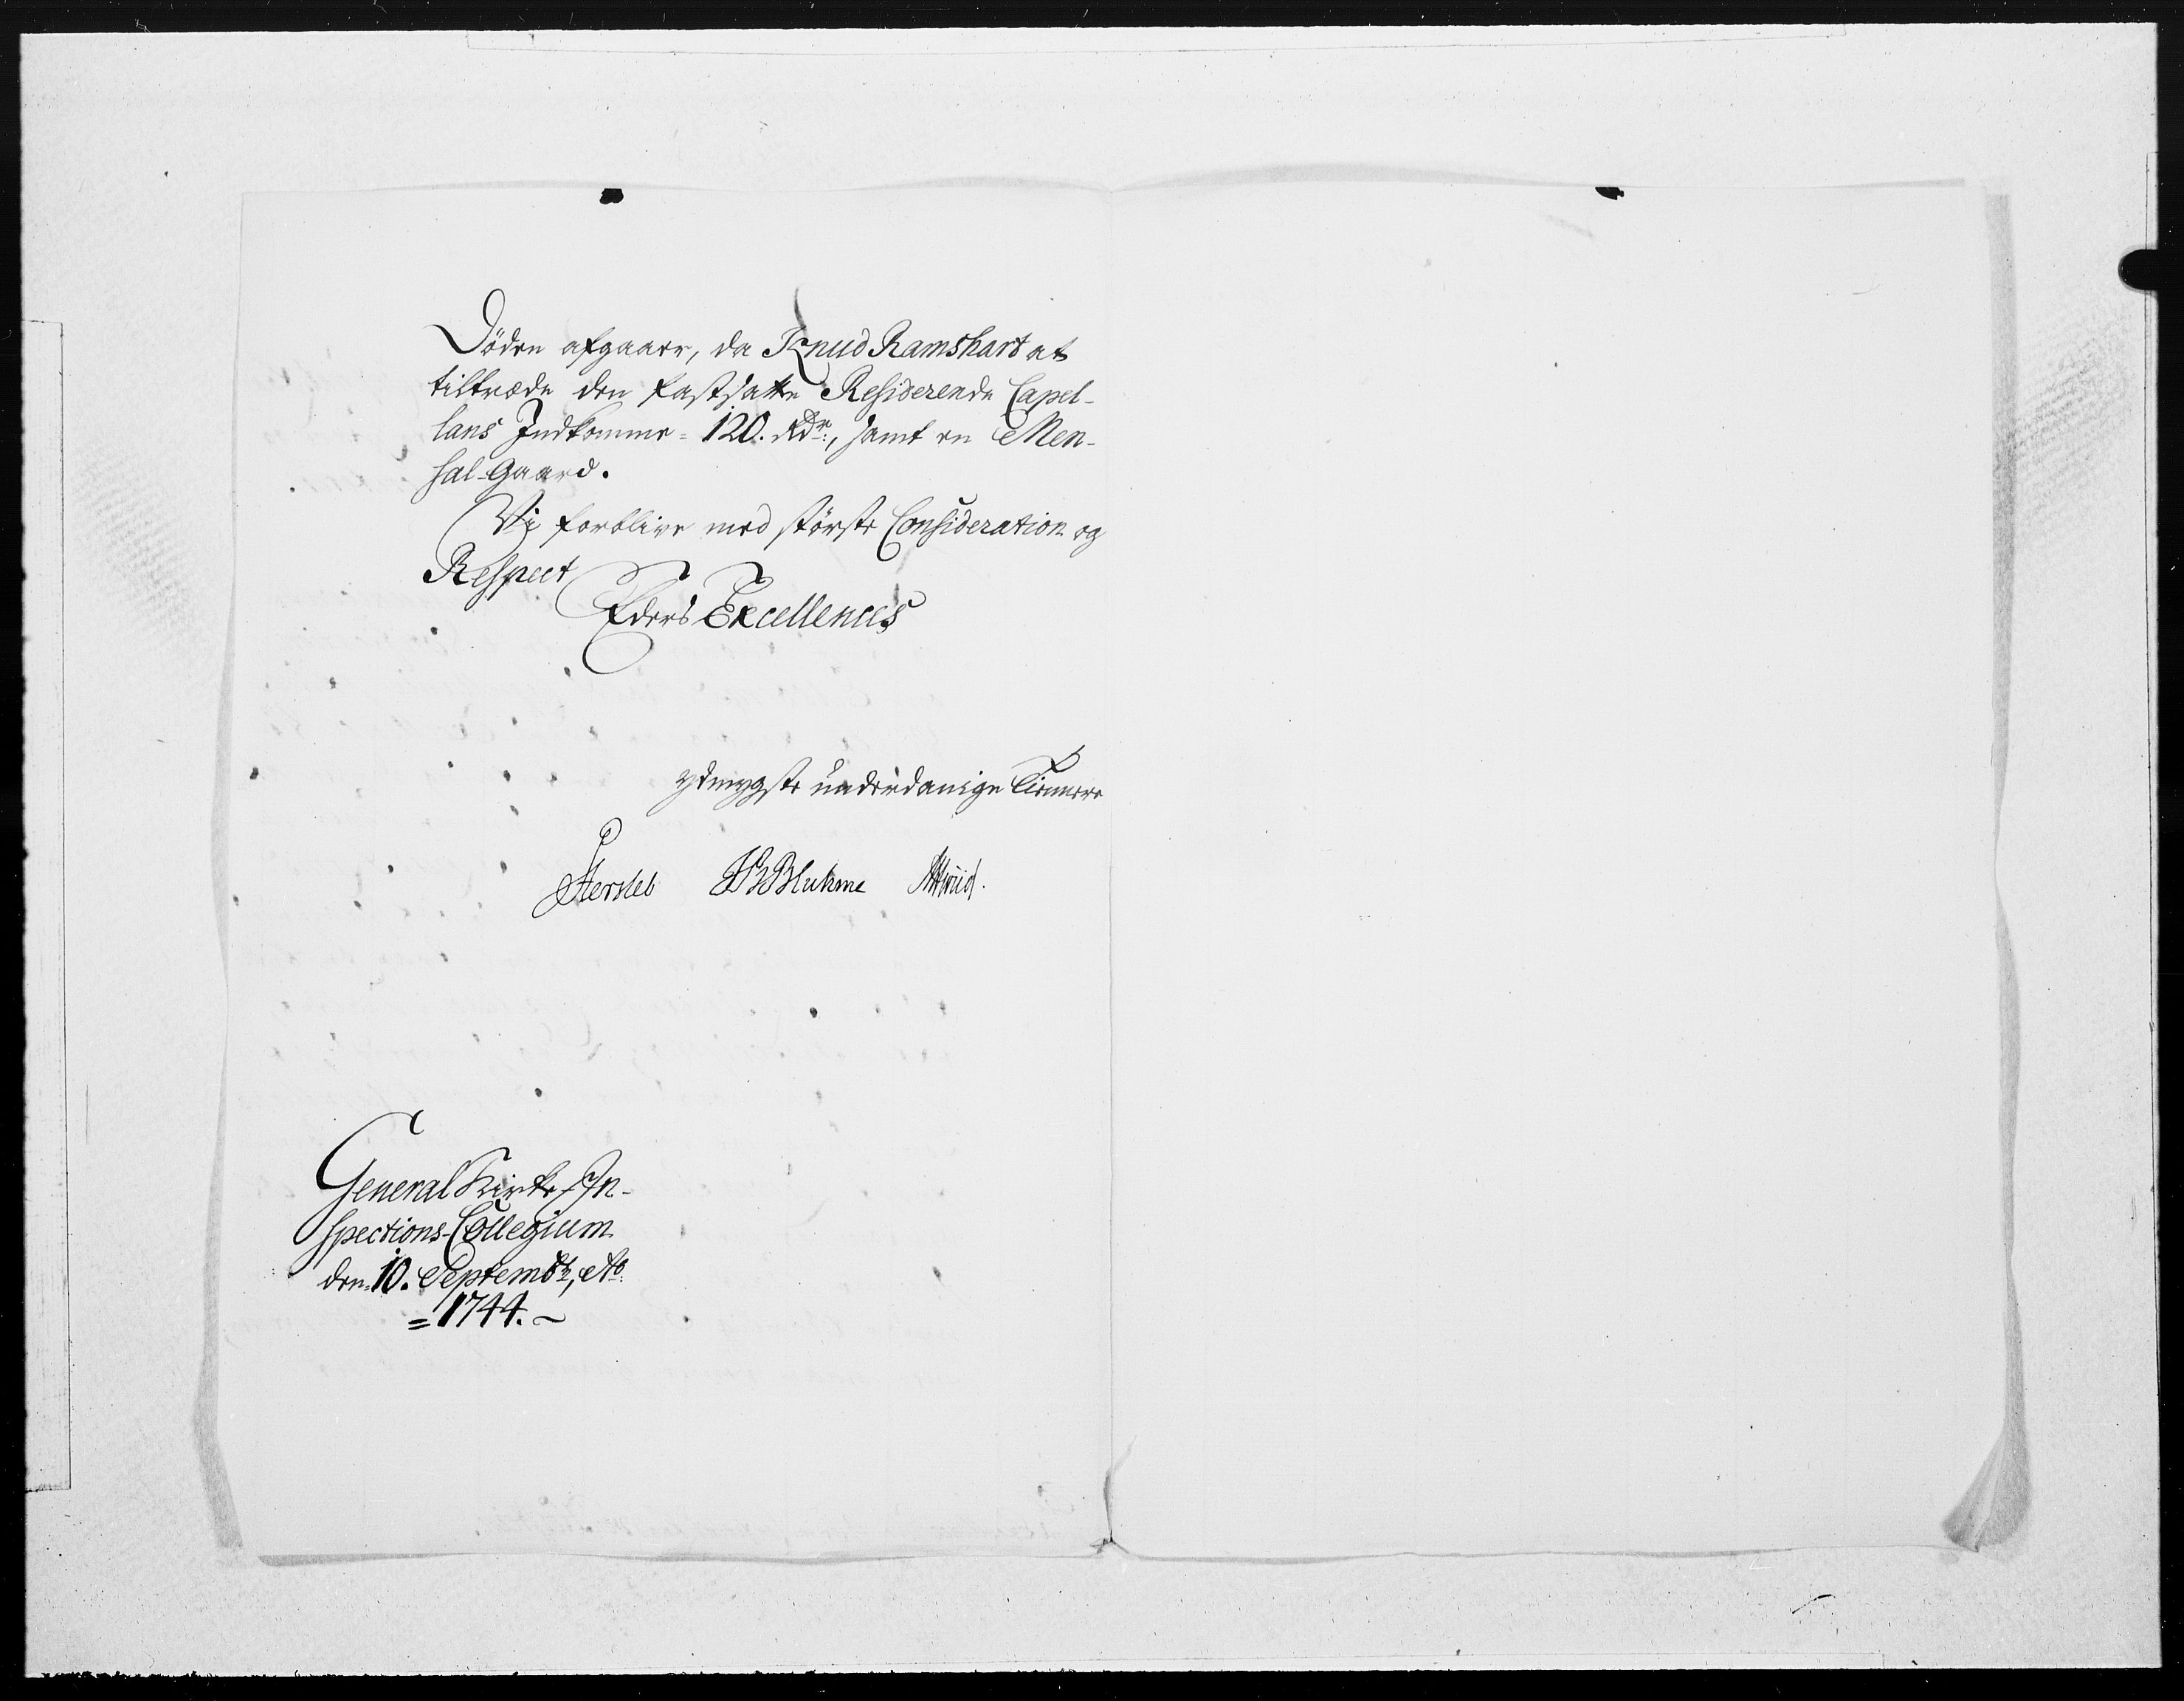 Döden afgaaer, da Knud Ramshart at
tiltræde den fastsatte Residerende Capel-
lans Indkomme = 120. Rdr:, samt en Men-
sal-Gaard.
Vi forblive med störste Consideration og
Respect
Eders Excellences
ydmygste underdanige Tienere
Hersleb JBBluhme AHwiid.
General Kirke-In-
spections-Collegium
den 10. Septembr, Ao.
= 1744. ~